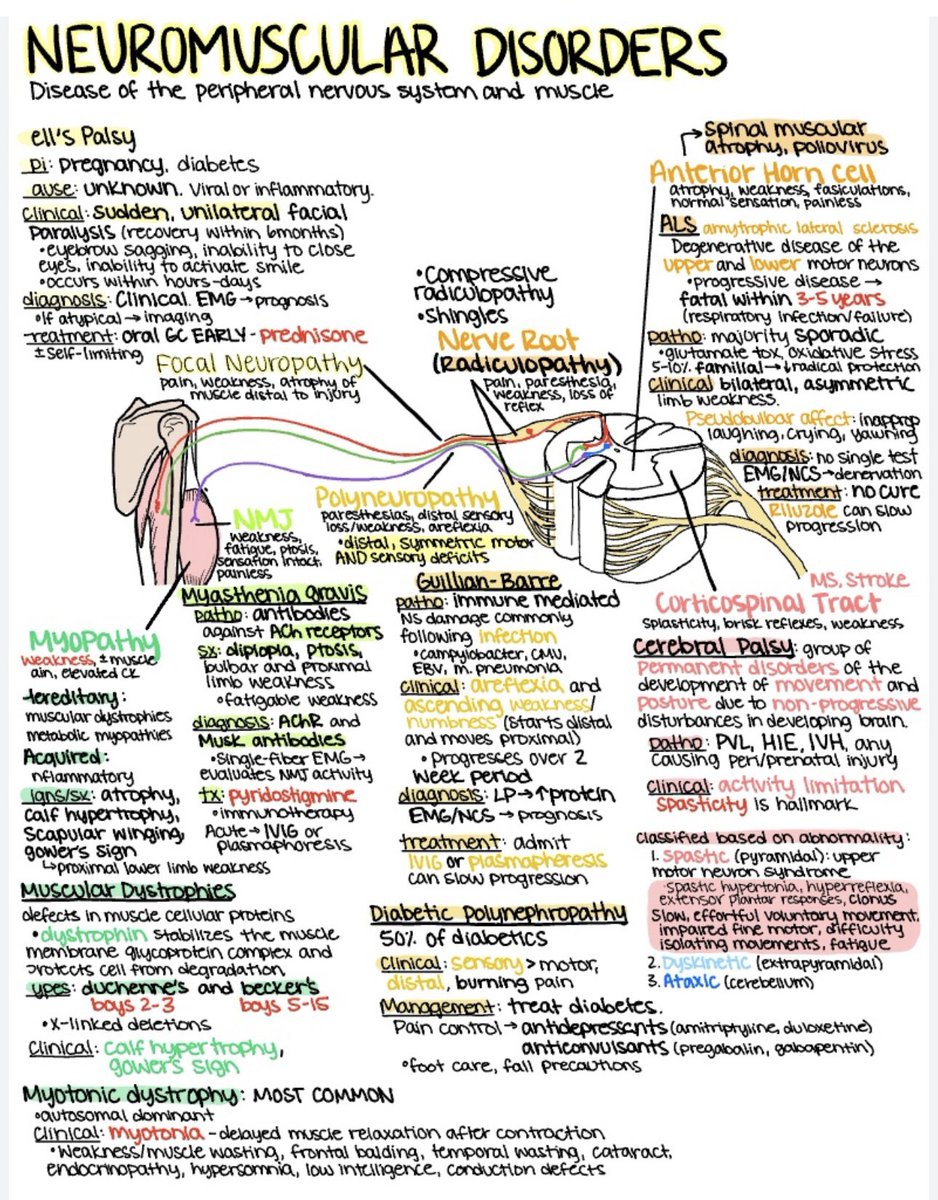 NEUROMUSCULAR DISORDERS
Disease of the peripheral nervous system and muscle
ell's Palsy
pi: pregnancy, diabetes
ause: unknown. Viral or inflammatory.
clinical: sudden, unilateral facial
paralysis (recovery within 6months)
•eyebrow sagging, inability to close
eyes, inability to activate smile
•occurs within hours-days
diagnosis: Clinical. EMG→prognosis
•If atypical→imaging
treatment: oral GC EARLY - prednisone
± self-limiting
Focal Neuropathy
pain, weakness, atrophy of
muscle distal to injury
•Compressive
radiculopathy
•Shingles
Nerve Root
(Radiculopathy)
pain, paresthesia,
weakness, loss of
reflex
spinal muscular
atrophy, poliovirus
Anterior Horn Cell
atrophy, weakness, fasiculations,
normal sensation, painless
ALS amytrophic lateral sclerosis
Degenerative disease of the
upper and lower motor neurons
•progressive disease→
fatal within 3-5 years
(respiratory infection/failure)
patho: majority sporadic
•glutamate tox, oxidative stress
5-10% familial→↓radical protection
clinical bilateral, asymmetric
limb weakness.
Pseudobulbar affect: inapprop
laughing, crying, yawning
diagnosis: no single test
EMG/NCS→denervation
treatment: no cure
Riluzole can slow
progression
NMJ
weakness,
fatigue, ptosis,
sensation intact,
painless
Polyneuropathy
paresthesias, distal sensory
loss/weakness, areflexia
•distal, symmetric motor
AND sensory deficits
Myopathy
weakness, ± muscle
ain, elevated CK
Hereditary:
muscular dystrophies
metabolic myopathies
Acquired:
nflammatory
igns/sx: atrophy,
calf hypertrophy,
scapular winging,
gower's sign
↳proximal lower limb weakness
Muscular Dystrophies
defects in muscle cellular proteins
•dystrophin stabilizes the muscle
membrane glycoprotein complex and
protects cell from degradation
ypes: duchenne's and becker's
boys 2-3 boys 5-15
•X-linked deletions
Clinical: calf hypertrophy,
gower's sign
Myotonic dystrophy: MOST COMMON
•autosomal dominant
Clinical: myotonia - delayed muscle relaxation after contraction
•Weakness/muscle wasting, frontal balding, temporal wasting, cataract,
endocrinopathy, hypersomnia, low intelligence, conduction defects
Myasthenia gravis
patho: antibodies
against ACh receptors
sx: diplopia, ptosis,
bulbar and proximal
limb weakness
•fatigable weakness
diagnosis: AChR and
Musk antibodies
•Single-fiber EMG→
evaluates NMJ activity
tx: pyridostigmine
•immunotherapy
Acute→IVIG or
plasmaphoresis
Guillian-Barre
patho: immune mediated
NS damage commonly
following infection
•campylobacter, CMV,
EBV, m. pneumonia
clinical: areflexia and
ascending weakness/
numbness (starts distal
and moves proximal)
•Progresses over 2
week period
diagnosis: LP→↑protein
EMG/NCS→prognosis
treatment: admit
IVIG or plasmapheresis
can slow progression
Diabetic Polynephropathy
50% of diabetics
Clinical: sensory > motor,
distal, burning pain
Management: treat diabetes.
Pain control→antidepressants (amitriptyline, duloxetine)
anticonvulsants (pregabalin, gabapentin)
•foot care, fall precautions
MS, Stroke
Corticospinal Tract
splasticity, brisk reflexes, weakness
Cerebral Palsy: group of
permanent disorders of the
development of movement and
posture due to non-progressive
disturbances in developing brain.
patho: PVL, HIE, IVH, any
causing peri/prenatal injury
Clinical: activity limitation
spasticity is hallmark
Classified based on abnormality:
1. Spastic (pyramidal): upper
motor neuron syndrome
•spastic hypertonia, hyperreflexia,
extensor plantar responses, clonus
Slow, effortful voluntary movement,
impaired fine motor, difficulty
isolating movements, fatigue
2. Dyskinetic (extrapyramidal)
3. Ataxic (cerebellum)